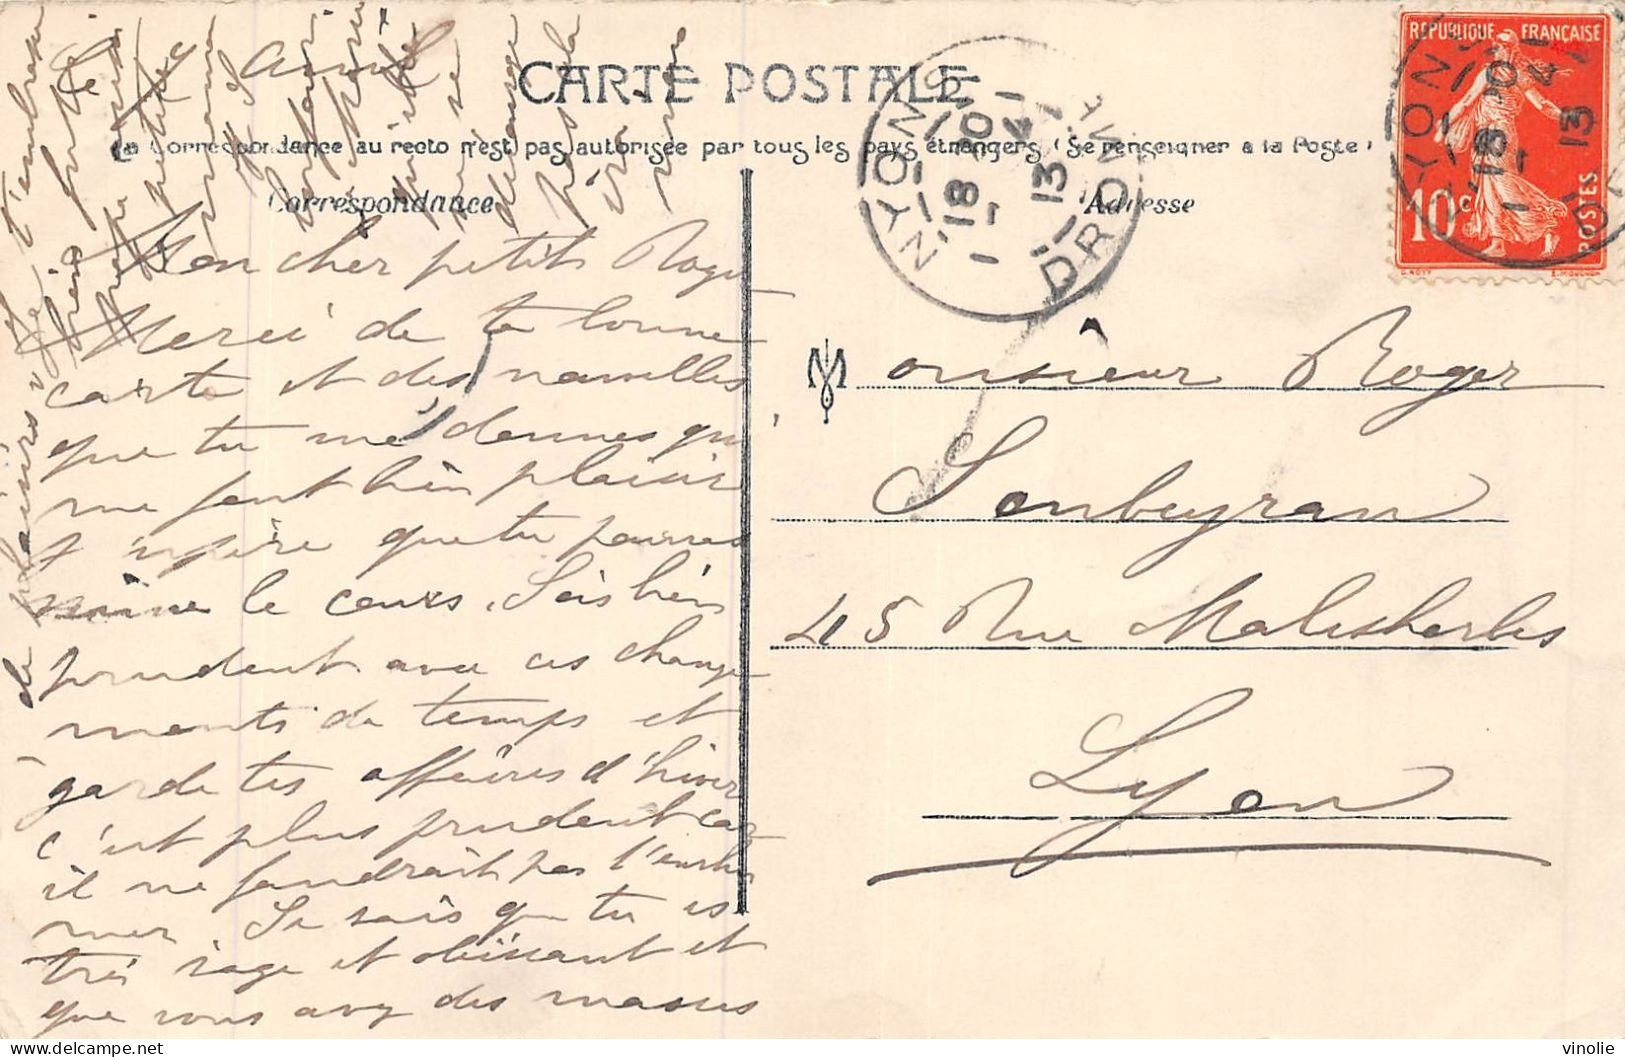 Le 17 avril
CARTE POSTALE
La Correspondance au recto n'est pas autorisée par tous les pays étrangers (Se renseigner à la Poste)
Correspondance
Adresse
NYONS
18 30
1 4
13
DROME
REPUBLIQUE FRANÇAISE
10 c
POSTES
NYONS
18 30
1 4
13
Mon cher petit Roger
Merci de ta bonne
carte et des nouvelles
que tu me donnes qui
me font bien plaisir
J'espère que tu pourras
suivre le cours. Sois bien
prudent avec ces change
ments de temps et
garde tes affaires d'hiver
c'est plus prudent car
il ne faudrait pas t'enrhu
mer. Je sais que tu es
très sage et obéissant et
que vous avez des masses
de plaisirs. Je t'embrasse
bien
Monsieur Roger
Soubeyran
45 Rue Malesherbes
Lyon
vinolie